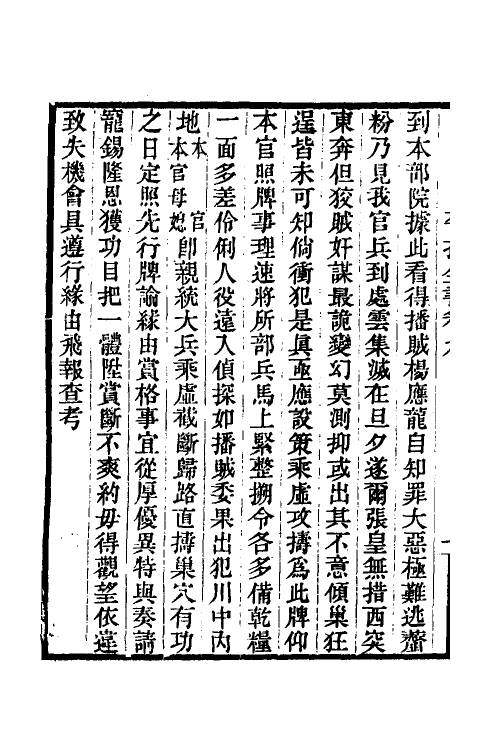 到本部院據此看得播賊楊應龍自知罪大惡極難逃虀
粉乃見我官兵到處雲集滅在旦夕遂爾張皇無措西突
東奔但狡賊奸謀最詭變幻莫測抑或出其不意傾巢狂
逞皆未可知倘衝犯是眞亟應設策乘虛攻擣爲此牌仰
本官照牌事理速將所部兵馬上緊整搠令各多備乾糧
一面多差伶俐人役遠入偵探如播賊委果出犯川中內
地本官母媳本官卽親統大兵乘虛截斷歸路直擣巢穴有功
之日定照先行牌諭緣由賞格事宜從厚優異特與奏請
寵錫隆恩獲功目把一體陞賞斷不爽約毋得觀望依違
致失機會具遵行緣由飛報查考